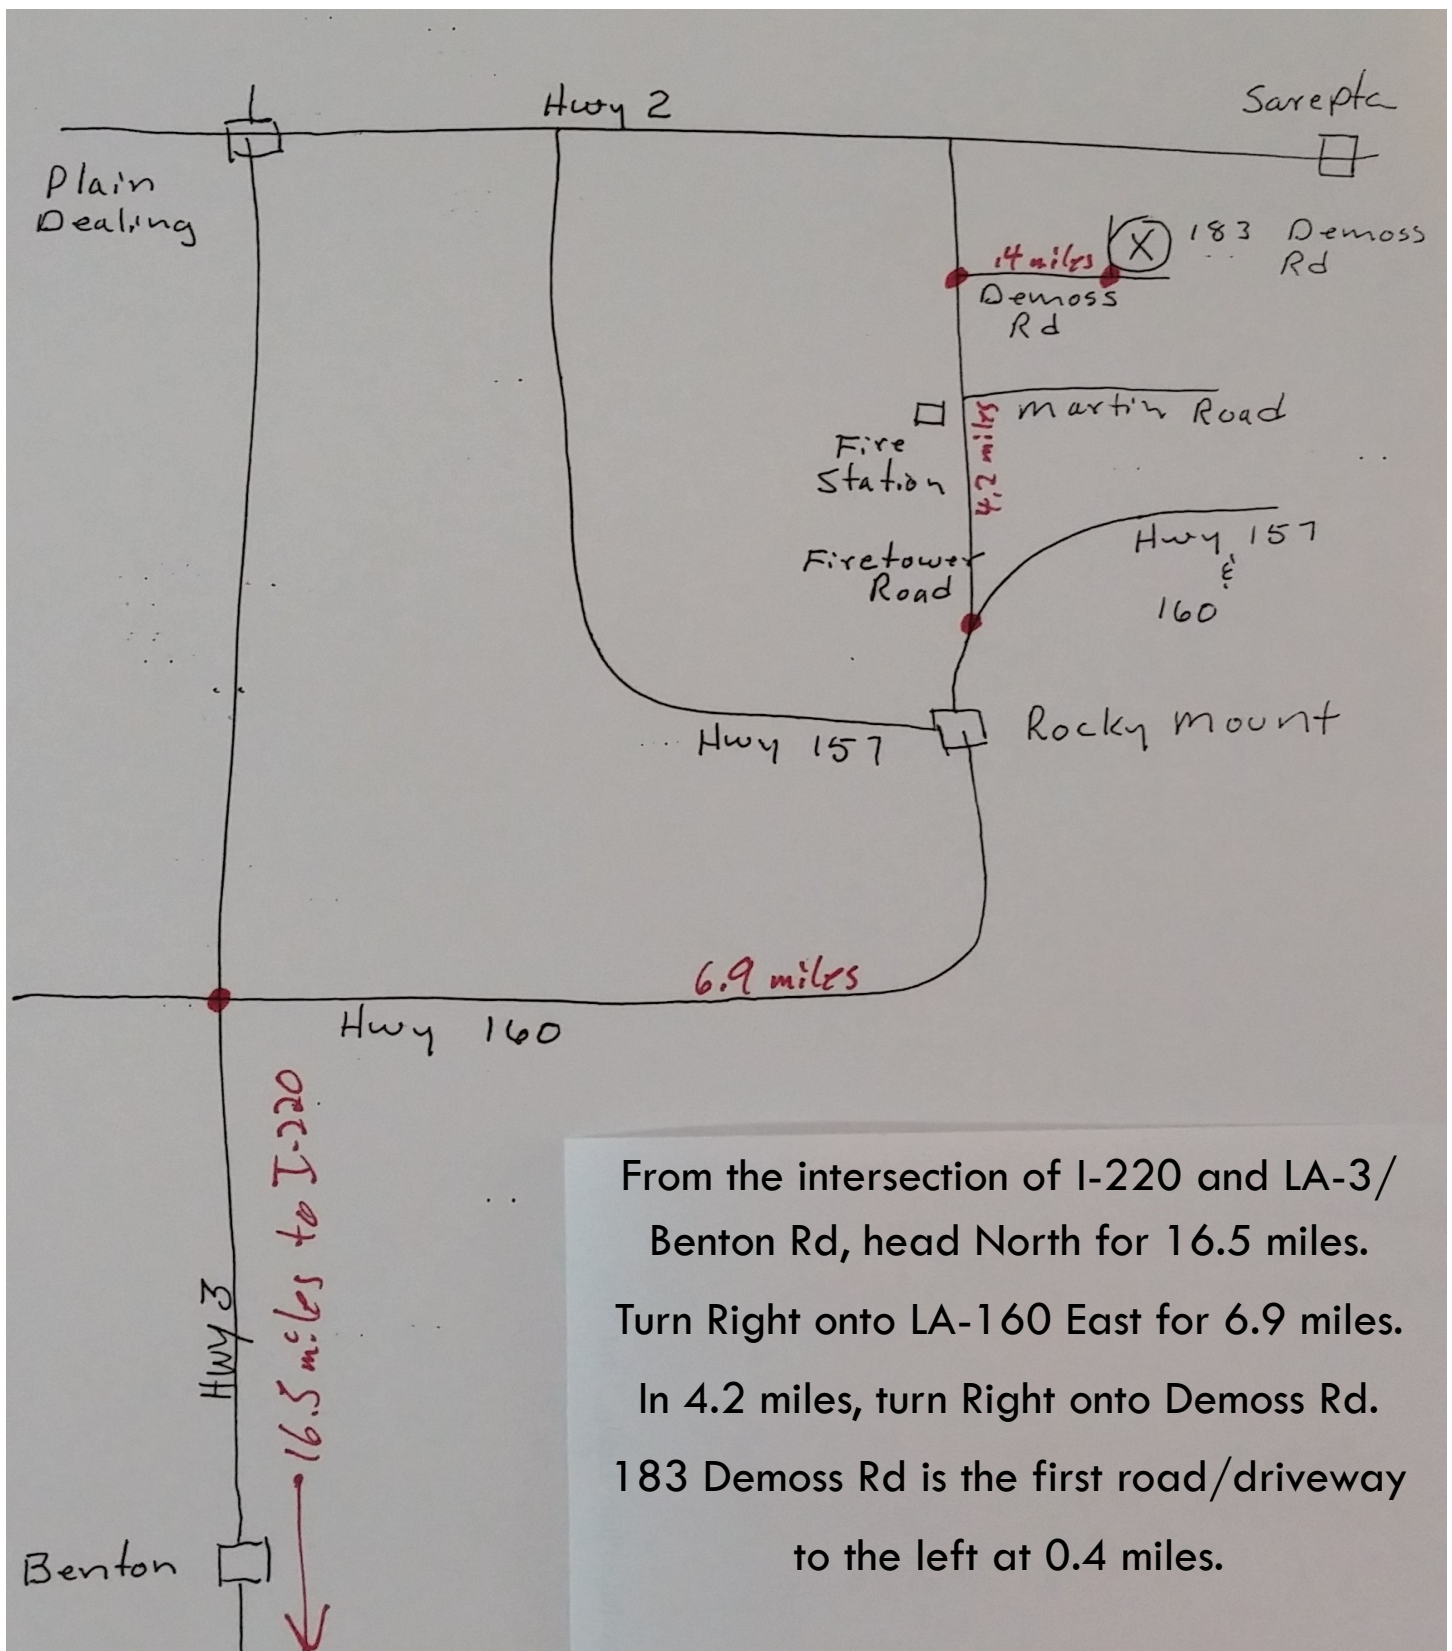 Hwy 2
Sarepta
Plain
Dealing
183 Demoss
Rd
.4 miles
Demoss
Rd
Martin Road
Fire
Station
4.2 miles
Firetower
Road
Hwy 157
&
160
Rocky Mount
Hwy 157
6.9 miles
Hwy 160
16.5 miles to I-220
HWY 3
Benton
X
From the intersection of I-220 and LA-3/
Benton Rd, head North for 16.5 miles.
Turn Right onto LA-160 East for 6.9 miles.
In 4.2 miles, turn Right onto Demoss Rd.
183 Demoss Rd is the first road/driveway
to the left at 0.4 miles.